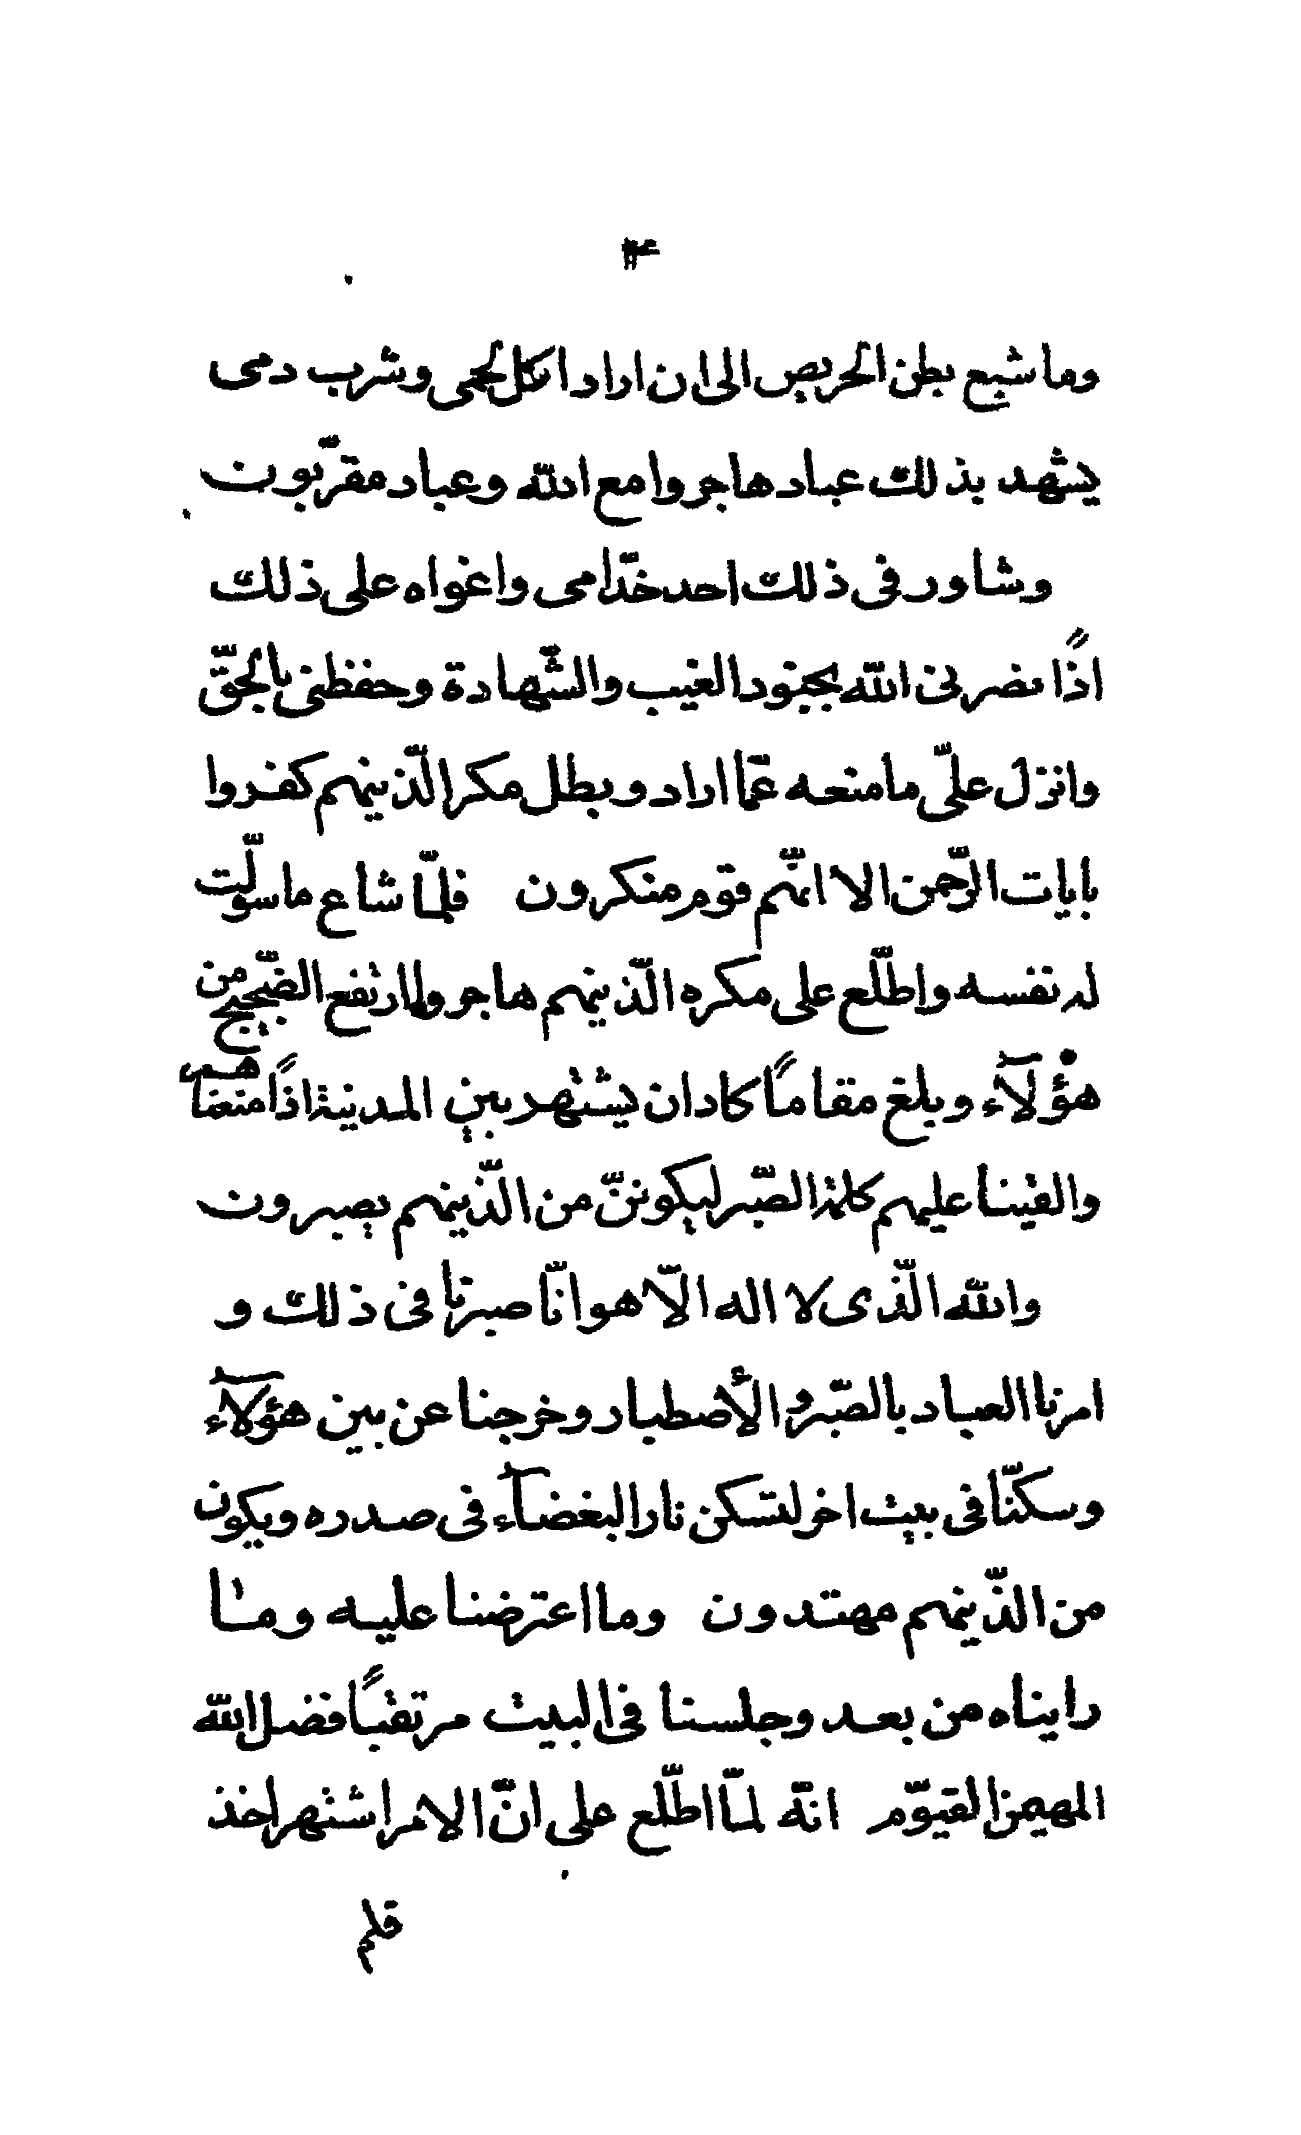 وما شبع بطن الحريص الى ان اراد اكل لحمى وشرب دمى
يشهد بذلك عباد هاجروا مع الله وعباد مقرّبون
وشاور فى ذلك احد خدّامى واغواه على ذلك
اذًا نصرنى الله بجنود الغيب والشّهادة وحفظنى بالحقّ
وانزل علىّ ما منعه عمّا اراد وبطل مكر الّذينهم كفروا
بايات الرّحمن الا انّهم قوم منكرون فلمّا شاع ما سوّلت
له نفسه واطّلع على مكره الّذينهم هاجروا وارتفع الضّجيج من
هؤلآء وبلغ مقامًا كاد ان يشتهر بين المدينة اذًا منعناهم
والقينا عليهم كلمة الصّبر ليكوننّ من الّذينهم يصبرون
والله الّذى لا اله الّا هو انّا صبرنا فى ذلك و
امرنا العباد بالصّبر والأصطبار وخرجنا عن بين هؤلآء
وسكنّا فى بيت اخر لتسكن نار البغضآء فى صدره ويكون
من الّذينهم مهتدون وما اعترضنا عليه وما
رايناه من بعد وجلسنا فى البيت مرتقبًا فضل الله
المهيمن القيّوم انّه لمّا اطّلع على انّ الامر اشتهر اخذ
قلم